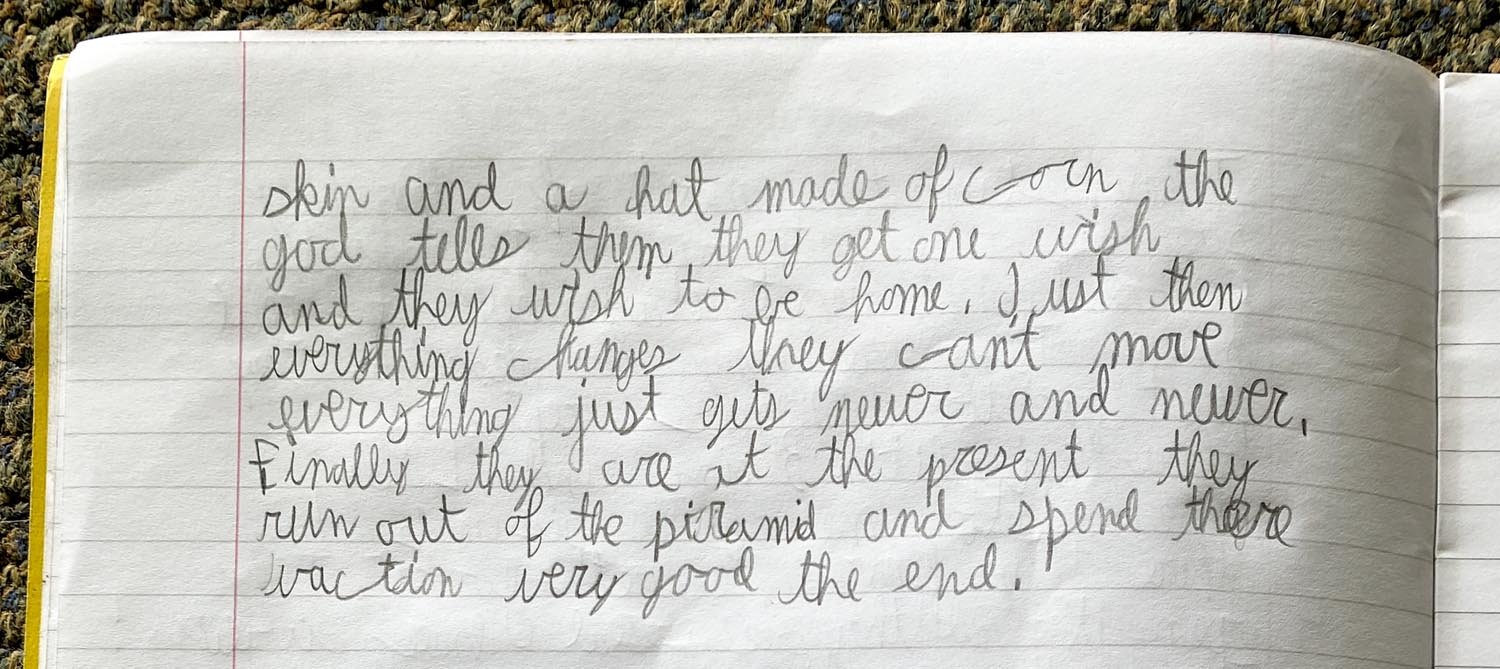 skin and a hat made of corn the
god tells them they get one wish
and they wish to be home. Just then
everything changes they can't move
everything just gets newer and newer.
Finally they are at the present they
run out of the piramid and spend there
vaction very good the end.